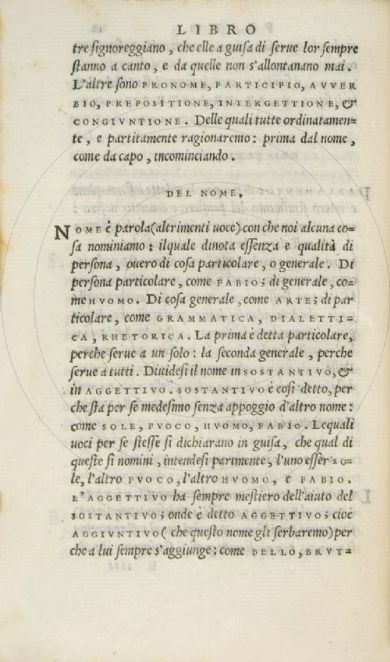 LIBRO
tre signoreggiano, che elle a guisa di serue lor sempre
stanno a canto, e da quelle non s'allontanano mai.
L'altre sono PRONOME, PARTICIPIO, AVVER
BIO, PREPOSITIONE, INTERGETTIONE, &
CONGIVNTIONE. Delle quali tutte ordinatamen=
te, e partitamente ragionaremo: prima dal nome,
come da capo, incominciando.
DEL NOME.
NOME è parola (altrimenti uoce) con che noi alcuna co=
sa nominiamo: ilquale dinota essenza e qualità di
persona, ouero di cosa particolare, o generale. Di
persona particolare, come FABIO; di generale, co=
me HVOMO. Di cosa generale, come ARTE; di par
ticolare, come GRAMMATICA, DIALETTI=
CA, RHETORICA. La prima è detta particolare,
perche serue a un solo: la seconda generale, perche
serue a tutti. Diuidesi il nome in SOSTANTIVO, &
in AGGETTIVO. SOSTANTIVO è cosi detto, per
che sta per se medesimo senza appoggio d'altro nome:
come SOLE, FVOCO, HVOMO, FABIO. Lequali
uoci per se stesse si dichiarano in guisa, che qual di
queste si nomini, intendesi parimente, l'uno esser SO=
le, l'altro FVOCO, l'altro HVOMO, e FABIO.
L'AGGETTIVO ha sempre mestiero dell'aiuto del
SOSTANTIVO; onde è detto AGGETTIVO; cioè
AGGIVNTIVO (che questo nome gli serbaremo) per
che a lui sempre s'aggiunge: come BELLO, BRVT=